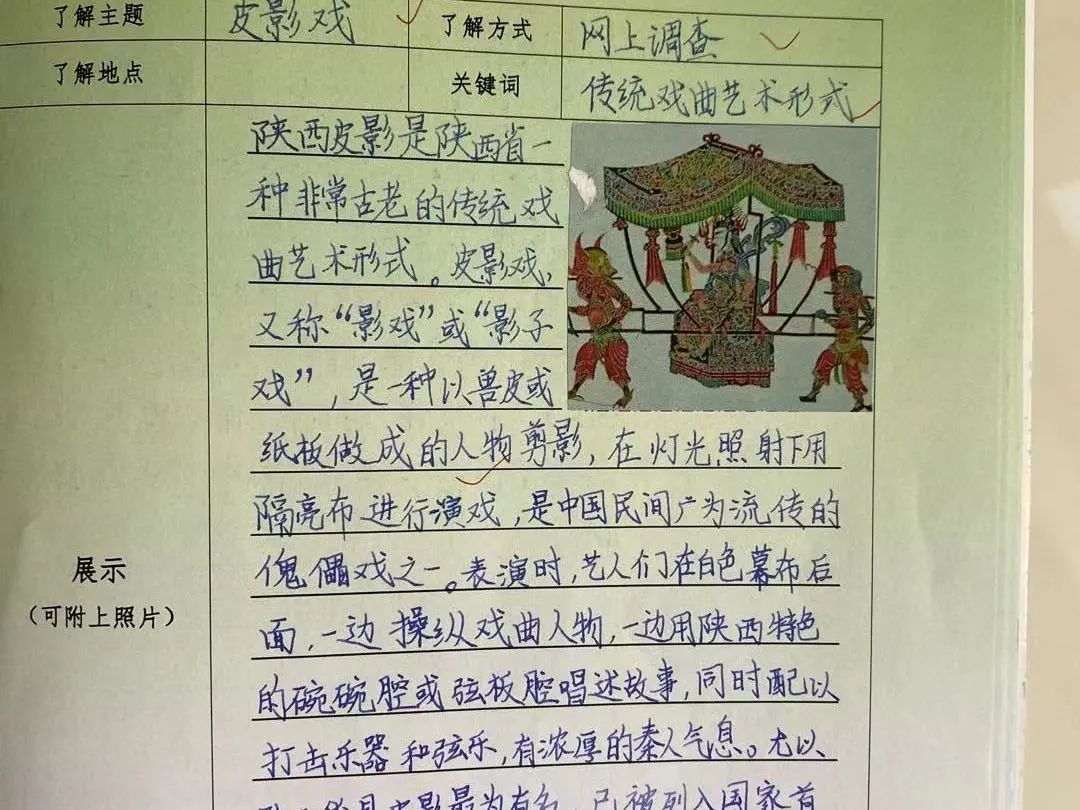 了解主题 皮影戏 了解方式 网上调查
了解地点 关键词 传统戏曲艺术形式
陕西皮影是陕西省一
种非常古老的传统戏
曲艺术形式。皮影戏,
又称“影戏”或“影子
戏”,是一种以兽皮或
纸板做成的人物剪影,在灯光照射下用
隔亮布进行演戏,是中国民间广为流传的
傀儡戏之一。表演时,艺人们在白色幕布后
面,一边操纵戏曲人物,一边用陕西特色
的碗碗腔或弦板腔唱述故事,同时配以
打击乐器和弦乐,有浓厚的秦人气息。尤以
皮影最为有名,已被列入国家首
展示
(可附上照片)